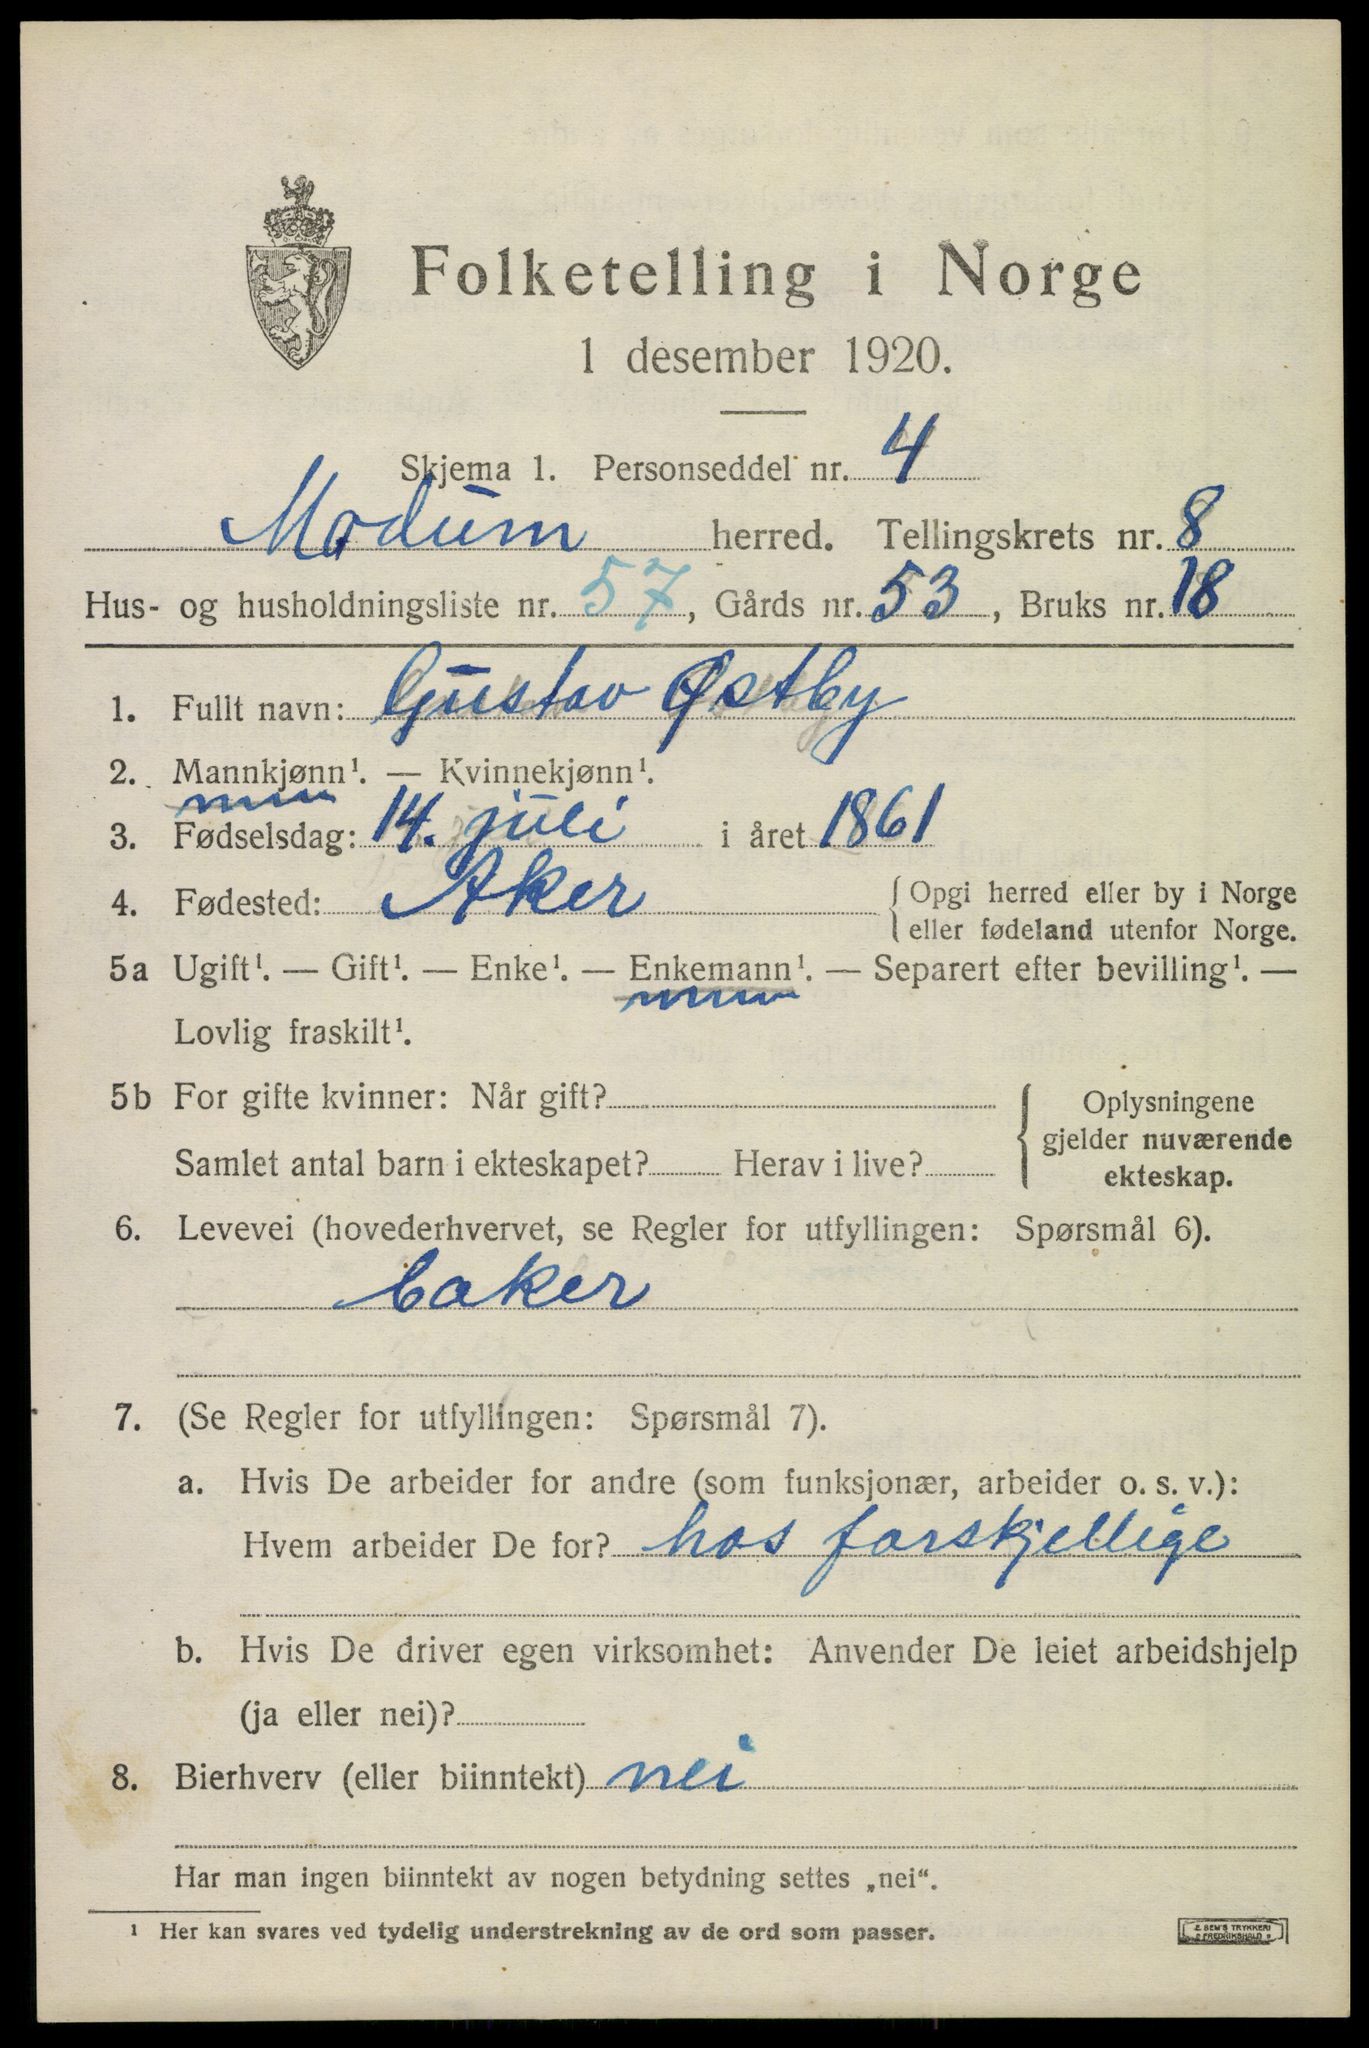 Folketelling i Norge
1 desember 1920.
Skjema 1. Personseddel nr. 4
Modum herred. Tellingskrets nr. 8
Hus- og husholdningsliste nr. 57, Gårds nr. 53, Bruks nr. 18
1. Fullt navn: Gustav Østby
2. Mannkjønn¹. — Kvinnekjønn¹.
3. Fødselsdag: 14. juli i året 1861
4. Fødested: Aker { Opgi herred eller by i Norge
eller fødeland utenfor Norge.
5a Ugift¹. — Gift¹. — Enke¹. — Enkemann¹. — Separert efter bevilling¹. —
Lovlig fraskilt¹.
5b For gifte kvinner: Når gift? { Oplysningene
gjelder nuværende
Samlet antal barn i ekteskapet? Herav i live? ekteskap.
6. Levevei (hovederhvervet, se Regler for utfyllingen: Spørsmål 6).
baker
7. (Se Regler for utfyllingen: Spørsmål 7).
a. Hvis De arbeider for andre (som funksjonær, arbeider o. s. v.):
Hvem arbeider De for? hos forskjellige
b. Hvis De driver egen virksomhet: Anvender De leiet arbeidshjelp
(ja eller nei)?
8. Bierhverv (eller biinntekt) nei
Har man ingen biinntekt av nogen betydning settes „nei“.
¹ Her kan svares ved tydelig understrekning av de ord som passer.
E. SEM'S TRYKKERI
FREDRIKSHALD